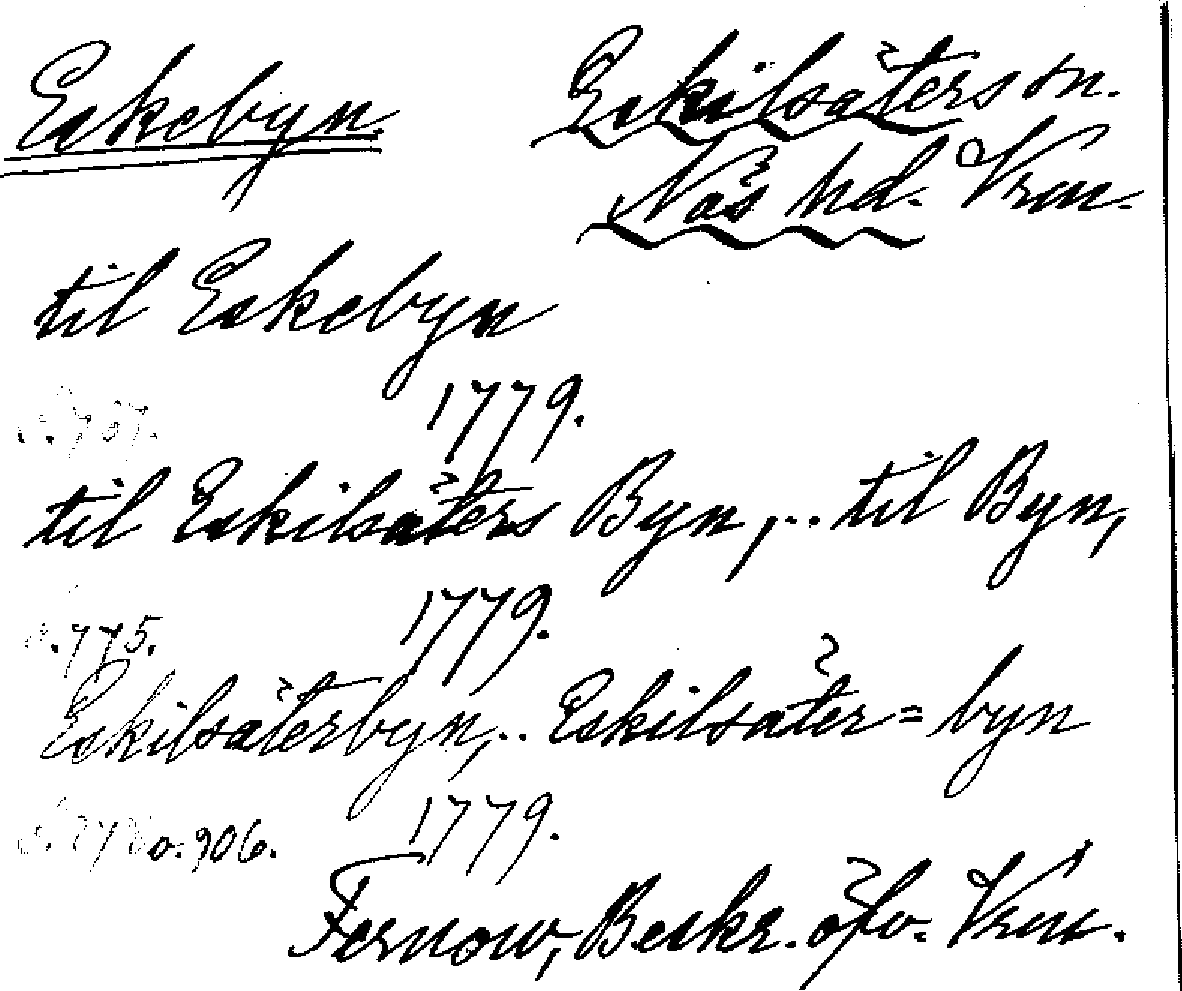 Eskebyn. Eskilsäters sn.
Näs hd. Vrm.
til Eskebyn
1779.
til Eskilsäters Byn,... til Byn,
s.775. 1779.
Eskilsäterbyn,.. Eskilsäter=byn
o.906. 1779.
Fernow, Beskr. öfv. Vrm.